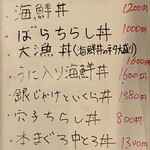 海鮮丼 1200円
ばらちらし丼 1000円
大漁丼(海鮮丼のネタ大盛り) 1600円
うに入り海鮮丼 1600円
銀じゃけといくら丼 1380円
穴子ちらし丼 800円
本まぐろ中とろ丼 1300円